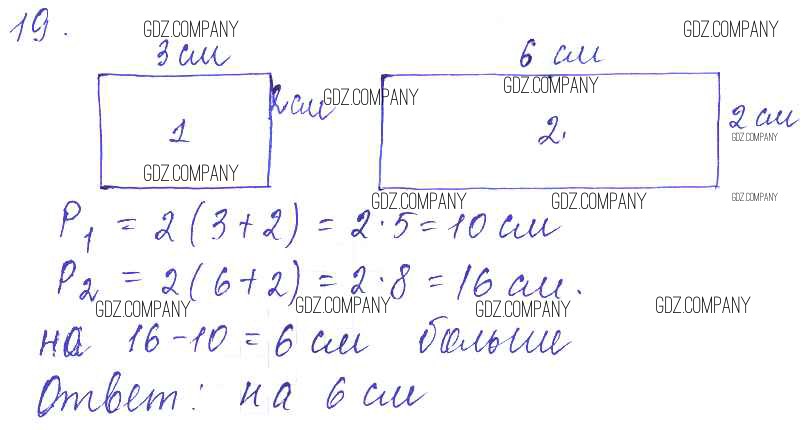 19. GDZ.COMPANY GDZ.COMPANY
3 см 6 см
2 см GDZ.COMPANY GDZ.COMPANY
1 2. 2 см
GDZ.COMPANY
GDZ.COMPANY
GDZ.COMPANY GDZ.COMPANY GDZ.COMPANY
P₁ = 2(3+2) = 2·5 = 10 см
P₂ = 2(6+2) = 2·8 = 16 см.
GDZ.COMPANY GDZ.COMPANY GDZ.COMPANY GDZ.COMPANY
на 16-10 = 6 см больше
Ответ: на 6 см